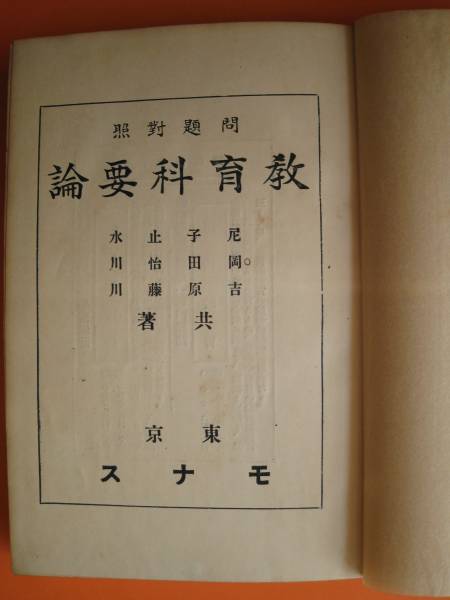 問題對照
教育科要論
尼子止水
岡田怡川
吉原藤川
共著
東京
モナス